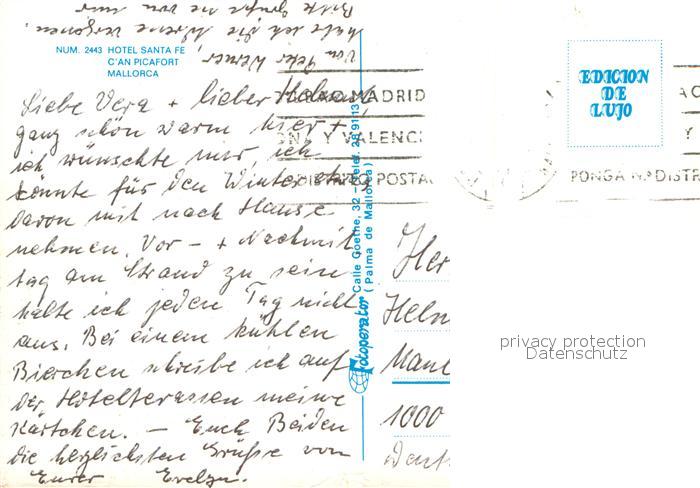 NUM. 2443 HOTEL SANTA FE
C'AN PICAFORT
MALLORCA
Liebe Vera + lieber Helmut,
ganz schön warm hier +
ich wünschte mir, ich
könnte für den Winter etwas
davon mit nach Hause
nehmen. Vor- + Nachmit
tag am Strand zu sein
halte ich jeden Tag nicht
aus. Bei einem kühlen
Bierchen schreibe ich auf
der Hotelterassen meine
Kärtchen. - Euch Beiden
die herzlichsten Grüße von
Eurer Evelyn.
Von Peter Werner,
habe ich die Adresse vergessen.
Bitte Grüße sie von mir
Fotoperator Calle Goethe, 32 - Telef. 28 91 13
(Palma de Mallorca)
EDICION
DE
LUJO
MADRID
Y VALENCI
POSTAL
PONGA Nº DISTR
Her
Helm
1000
privacy protection
Datenschutz